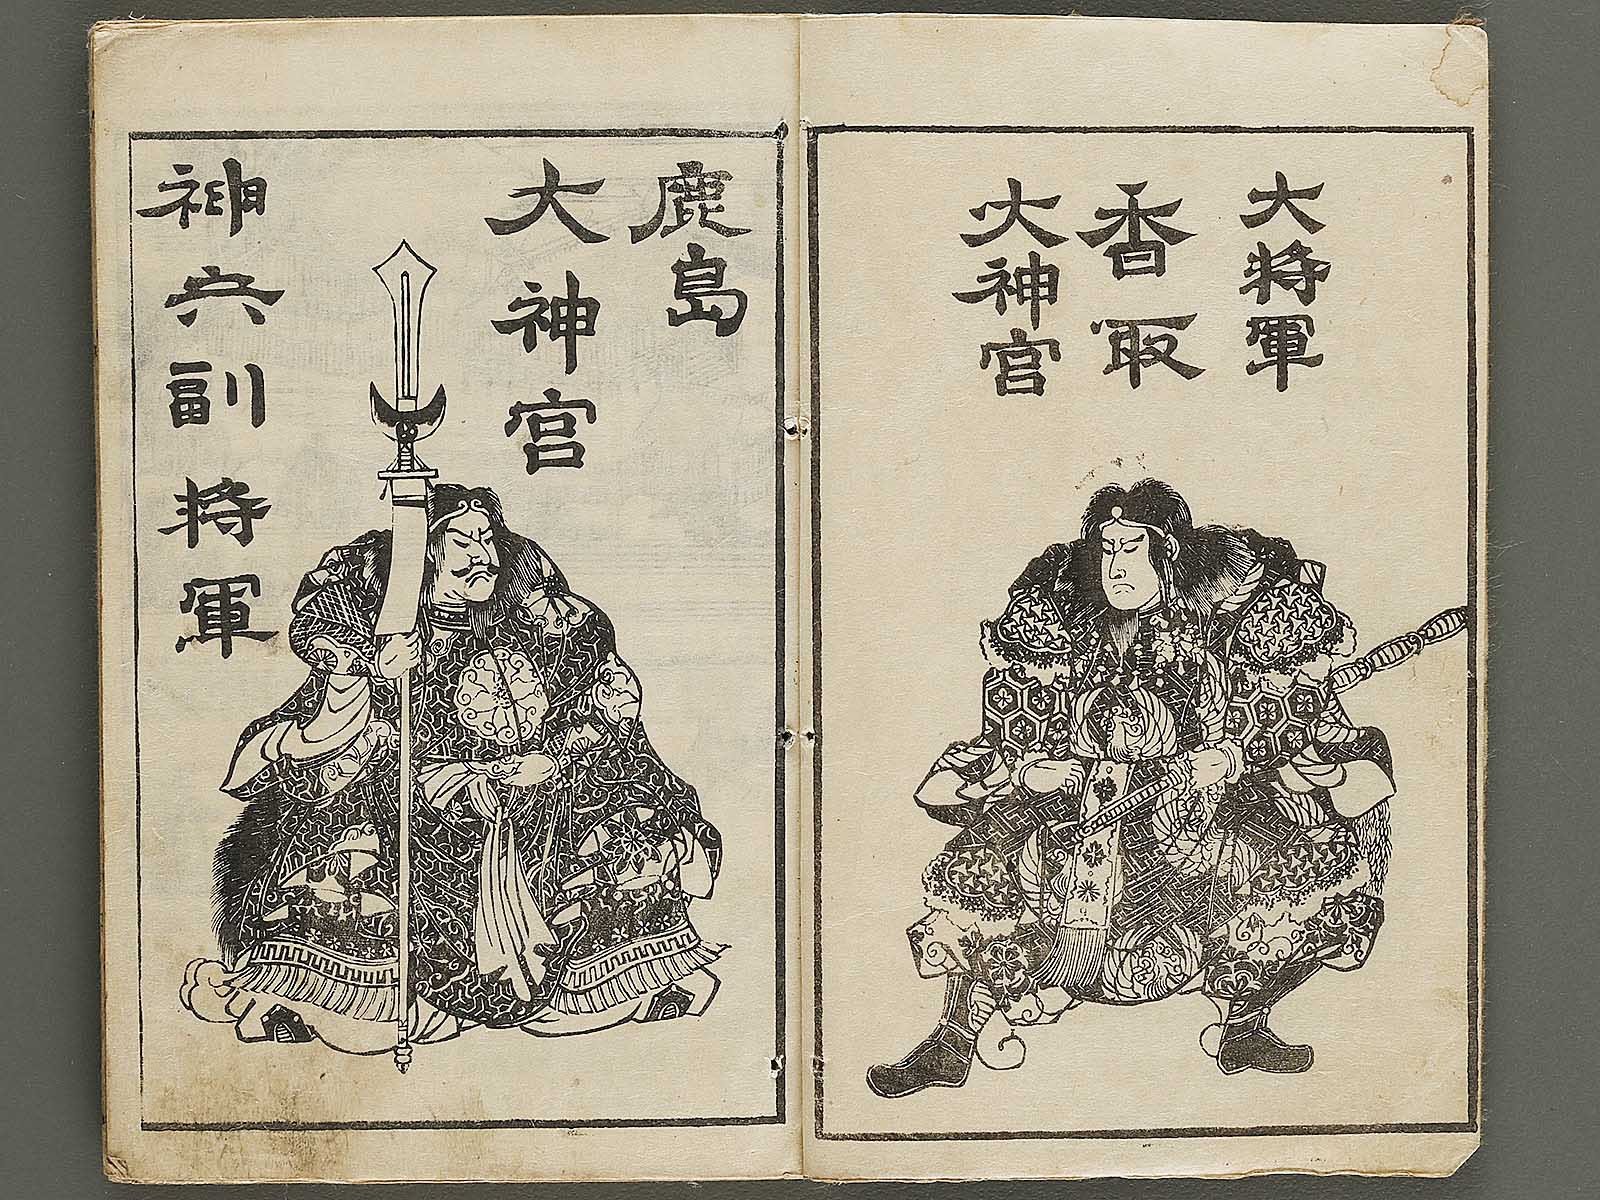 大将軍
香取
大神宮
鹿島
大神宮
神六副将軍